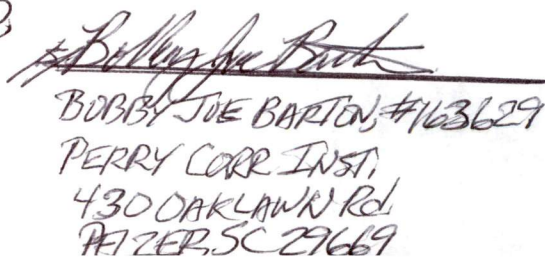 Bobby Joe Barton
BOBBY JOE BARTON, #163629
PERRY CORR INST.
430 OAKLAWN Rd.
PELZER, SC 29669